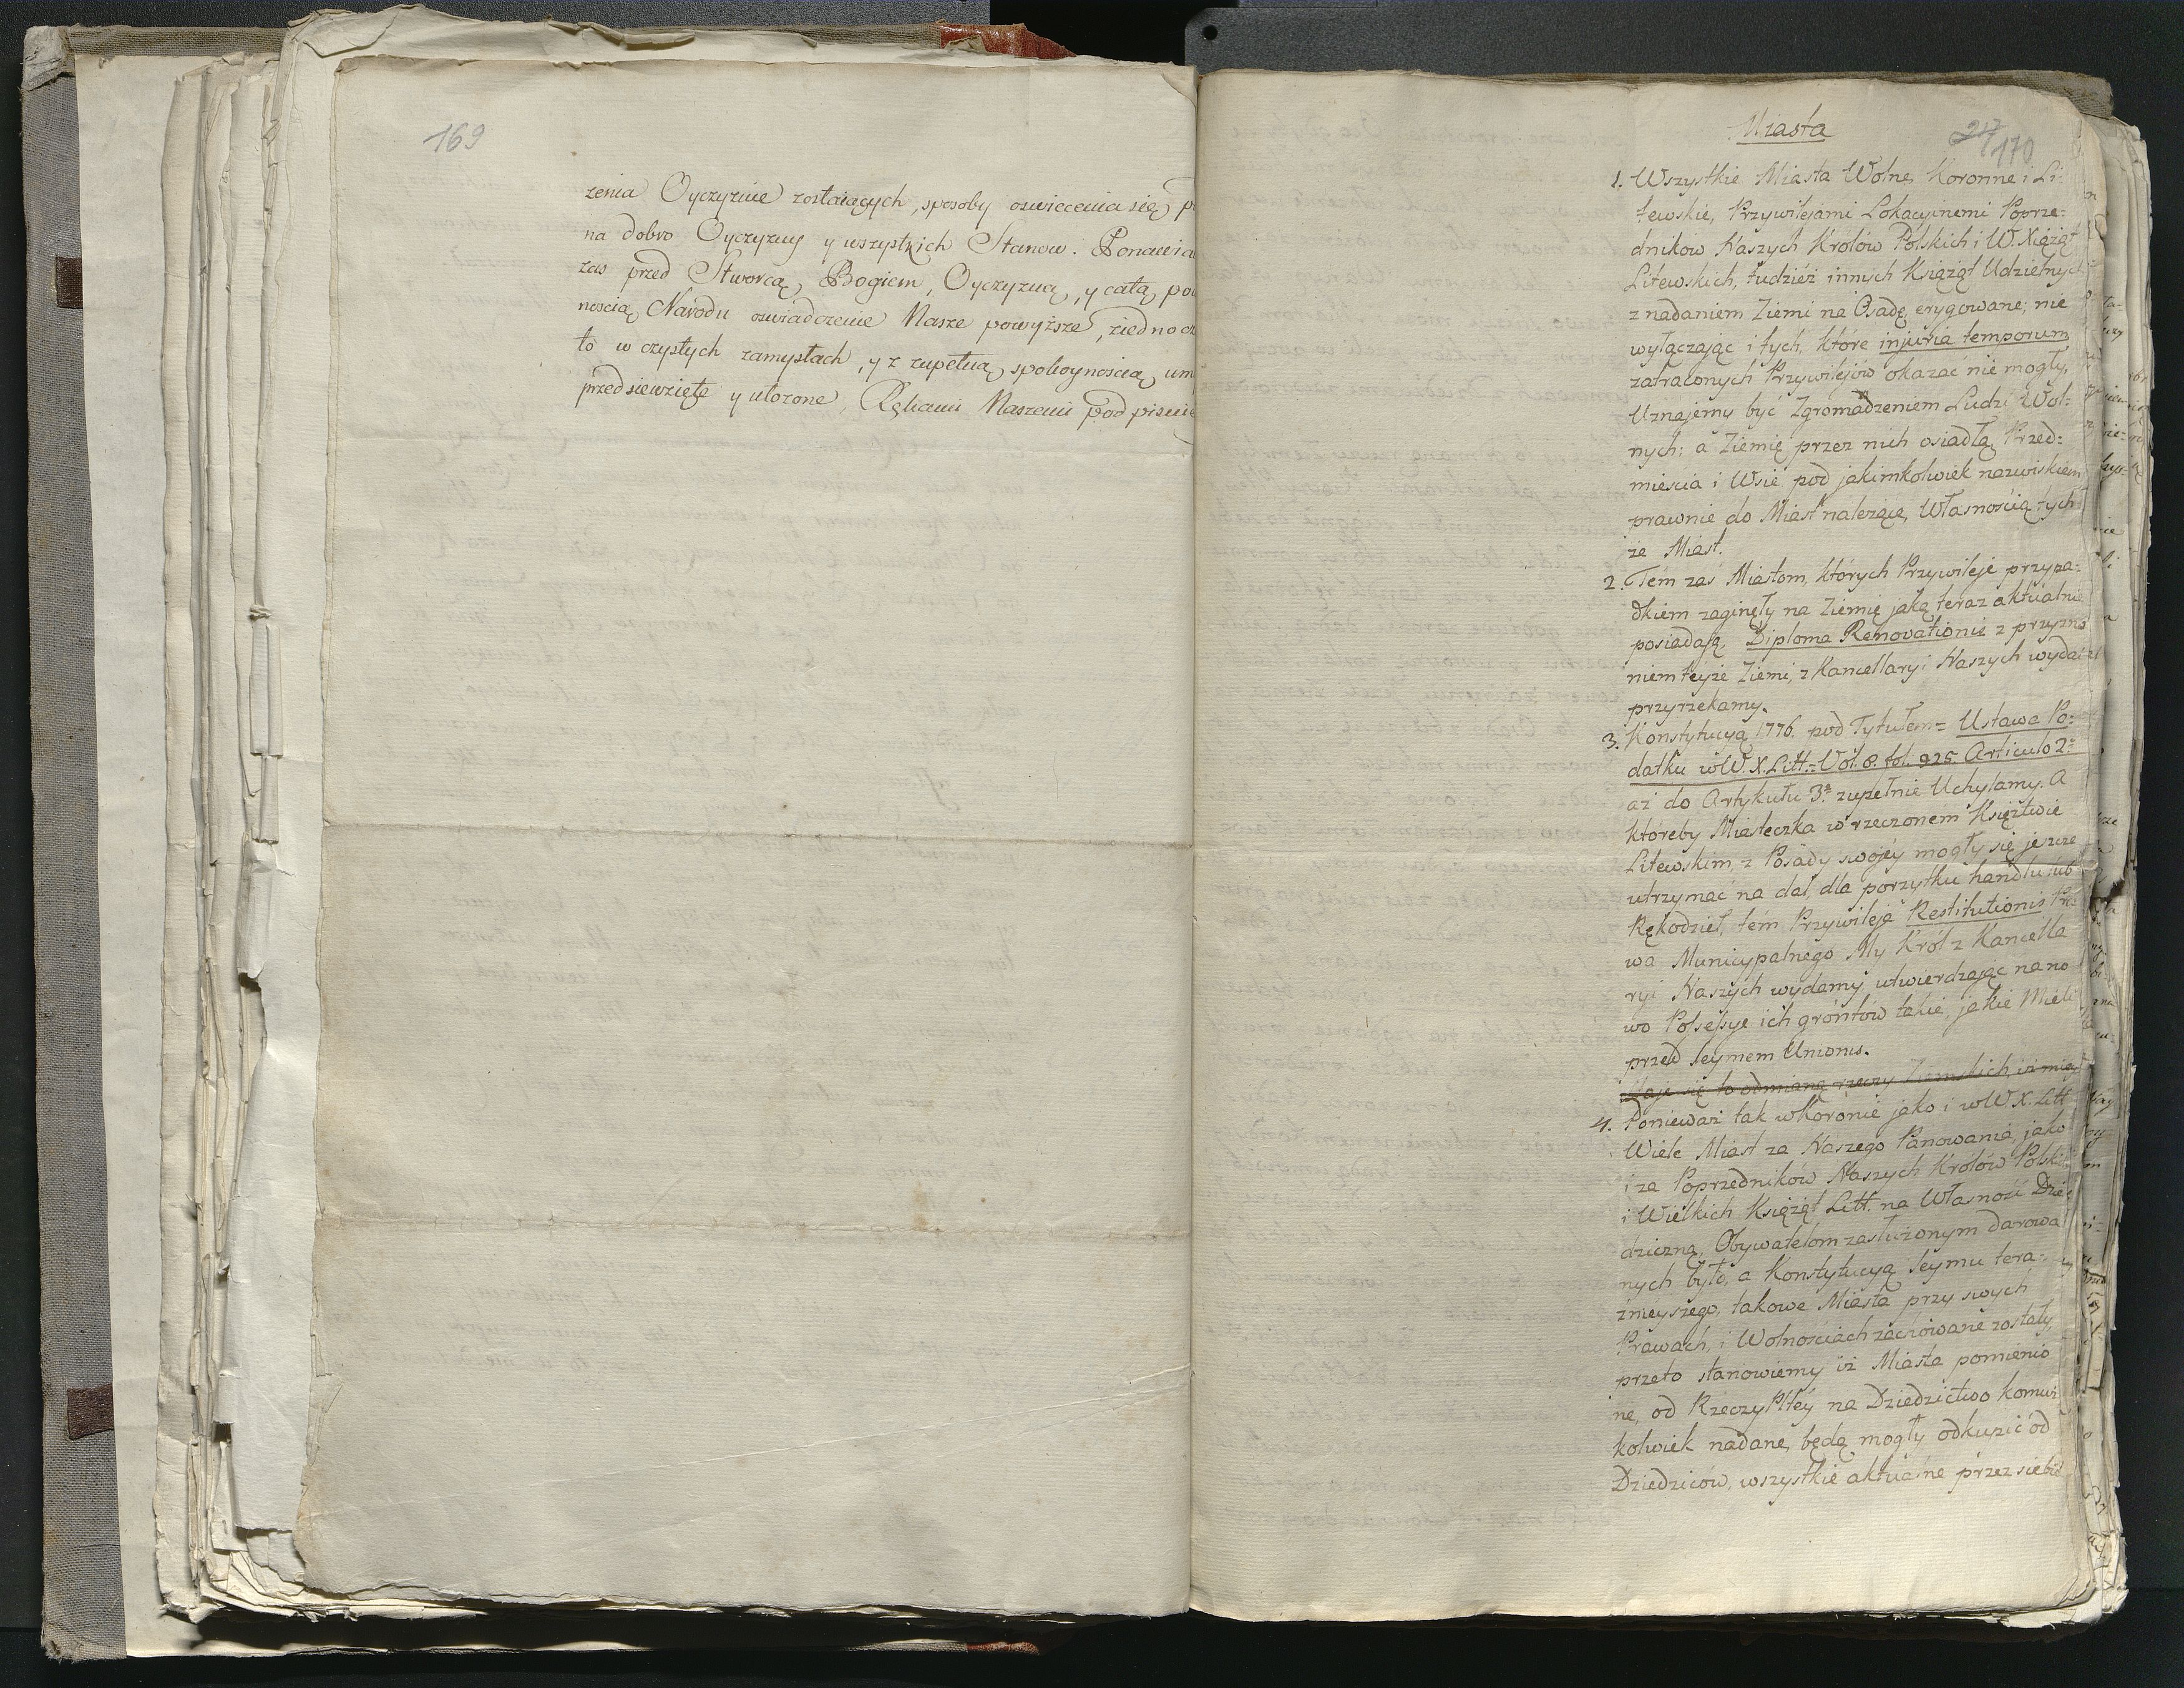 169
żenia Oyczyznie zostaiących, sposoby oswiecenia się p
na dobro Oyczyzny y wszystkich Stanow. Ponawia
zas przed Stworcą, Bogiem, Oyczyzną, y całą po
noscią Narodu oswiadczenie Nasze powyższe, ziednocz
to w czystych zamysłach, y z zupełną spokoynoscią um
przedsiewzięte y ułozone, Rękami Naszemi podpisuie
Miasta
217
170
1. Wszystkie Miasta Wolne Koronne i Li-
tewskie, Przywilejami Lokacyjnemi Poprze-
dników Naszych Królów Polskich i W. Xiążąt
Litewskich, tudzież innych Książąt Udzielnych
z nadaniem Ziemi na Osadę erygowane; nie
wyłączając i tych, które injuria temporum
zatraconych Przywilejów okazać nie mogły,
Uznajemy być Zgromadzeniem Ludzi Wol-
nych; a Ziemię przez nich osiadłą, Przed-
mieścia i Wsie pod jakimkolwiek nazwiskiem
prawnie do Miast należące, Własnością tych
że Miast.
2. Tém zaś Miastom, których Przywileje przypa-
dkiem zaginęły na Ziemię jaką teraz aktualnie
posiadają, Diploma Renovationis z przyzna
niem teyże Ziemi, z Kancellaryi Naszych wydać
przyrzekamy.
3. Konstytucyą 1776. pod Tytułem = Ustawa Po-
datku w W.X.Litt. = Vol. 8. fol. 925 Articulo 2º
aż do Artykułu 3º zupełnie Uchylamy. A
któreby Miasteczka w rzeczonem Księztwie
Litewskim, z Posady swojéy mogły się jeszcze
utrzymać na dal, dla pożytku handlu lub
Rękodzieł, tém Przywileja Restitutionis Pra
wa Municypalnego My Król z Kancella
ryi Naszych wydamy, utwierdzając na no
wo Possessye ich grontów takie, jakie Mieli
przed Seymem Unionis.
staje się to odmianą rzeczy Ziemskich, iż mię
4. Ponieważ tak w Koronie jako i w W.X.Litt
Wiele Miast za Naszego Panowania, jako
i za Poprzedników Naszych Królów Polski
i Wielkich Książąt Litt. na Własność Dzie
dziczną, Obywatelom zasłużonym darowa
nych było, a Konstytucyą Seymu tera-
źnieyszego, takowe Miasta przy swych
Prawach, i Wolnościach zachowane zostały,
przeto stanowiemy iż Miasta pomienio
ne, od Rzeczy Pltéy na Dziedzictwo komuż
kolwiek nadane, będą mogły odkupić od
Dziedziców, wszystkie aktualne przez siebie